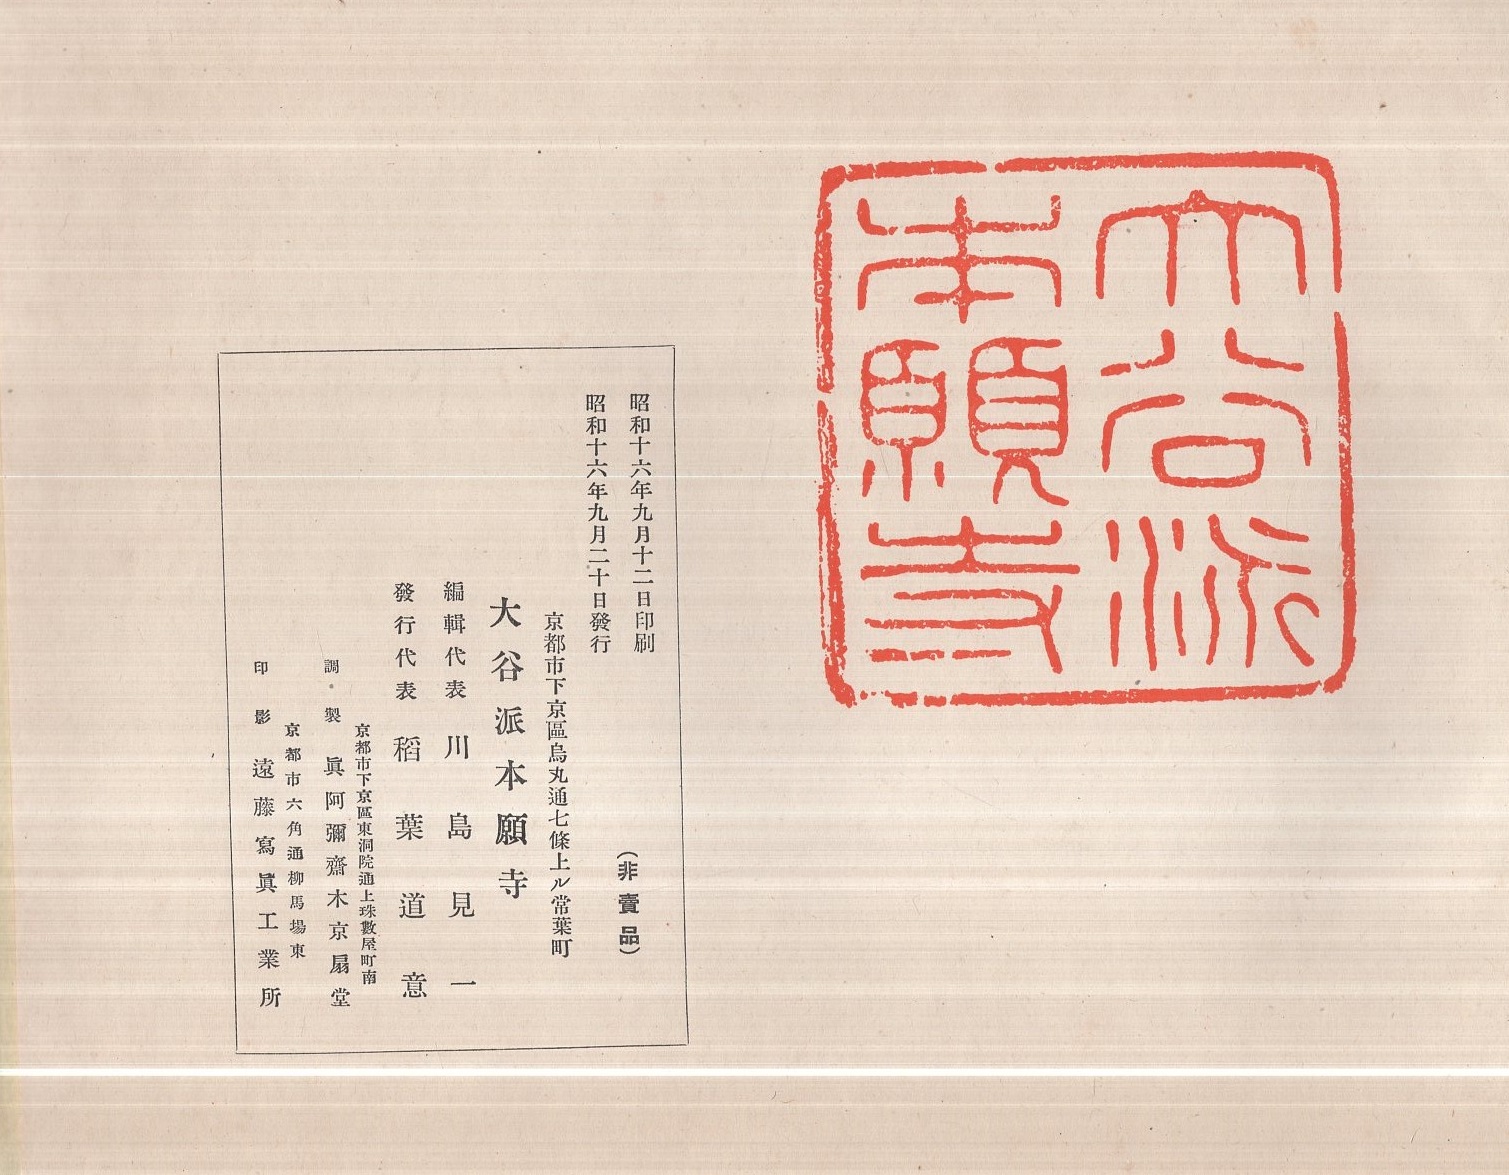 大谷派
本願寺
昭和十六年九月十二日印刷
(非賣品)
昭和十六年九月二十日發行
京都市下京區烏丸通七條上ル常葉町
大谷派本願寺
編輯代表 川島見一
發行代表 稻葉道意
京都市下京區東洞院通上珠數屋町南
調製 眞阿彌齋木京扇堂
京都市六角通柳馬場東
印影 遠藤寫眞工業所